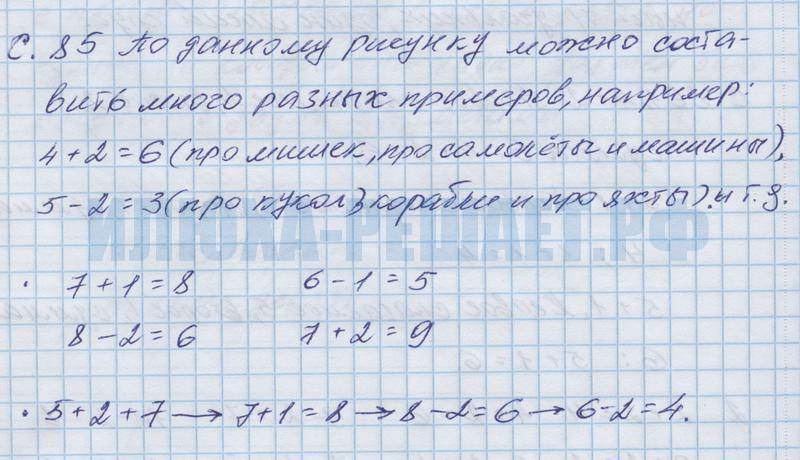 С. 85 По данному рисунку можно соста-
вить много разных примеров, например:
4 + 2 = 6 (про мишек, про самолёты и машины),
5 - 2 = 3 (про кукол, корабли и про яхты) и т. д.
ИШОЛА-РЕШАЕТ.РФ
· 7 + 1 = 8 6 - 1 = 5
8 - 2 = 6 7 + 2 = 9
· 5 + 2 + 7 → 7 + 1 = 8 → 8 - 2 = 6 → 6 - 2 = 4.